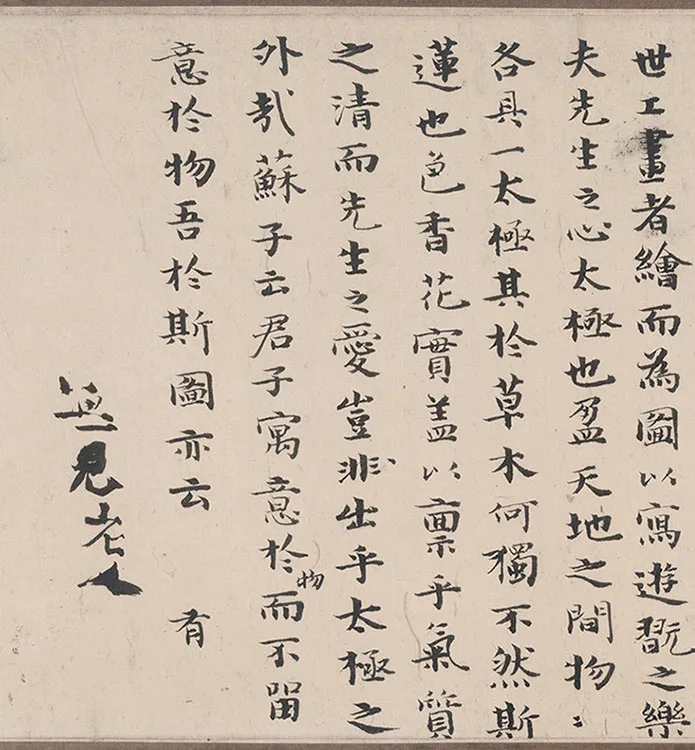 世工畫者繪而為圖以寫遊翫之樂
夫先生之心太極也盈天地之間物〻
各具一太極其於草木何獨不然斯
蓮也色香花實盖以稟乎氣質
之清而先生之愛豈非出乎太極之
外哉蘇子云君子寓意於物而不留
意於物吾於斯圖亦云 有
見老人